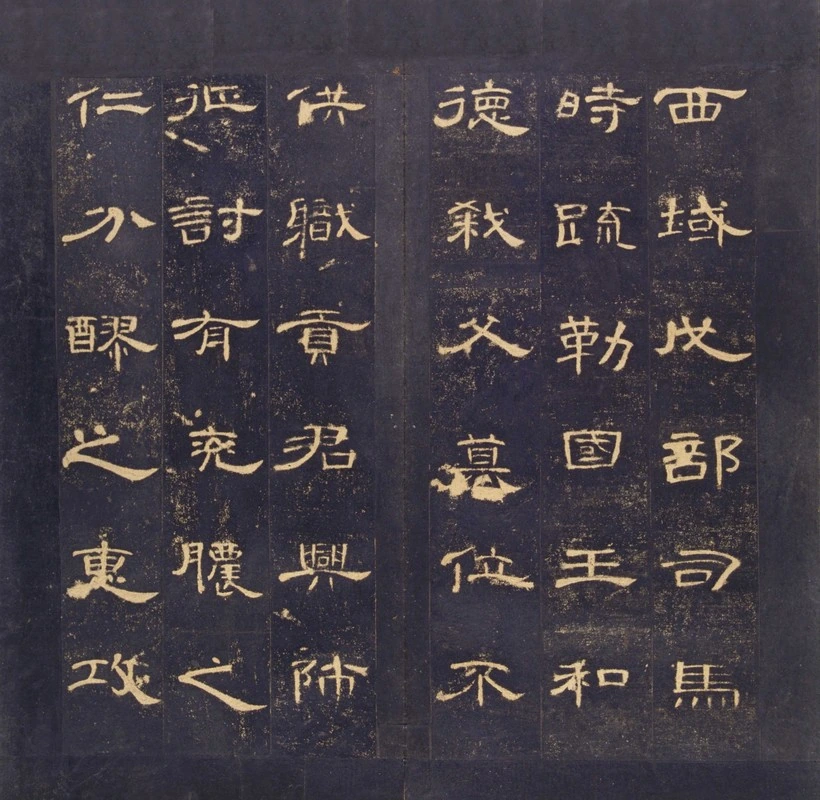 西域戊部司馬
時疏勒國王和
德弒父篡位不
供職貢君興師
征討有兖膿之
仁分醪之惠攻